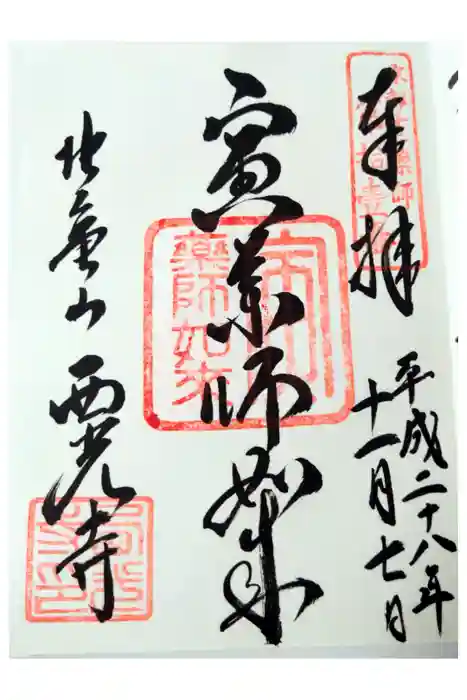 奉拝
平成二十八年
十一月七日
寅薬師如来
藥師如来
北亀山 西光寺